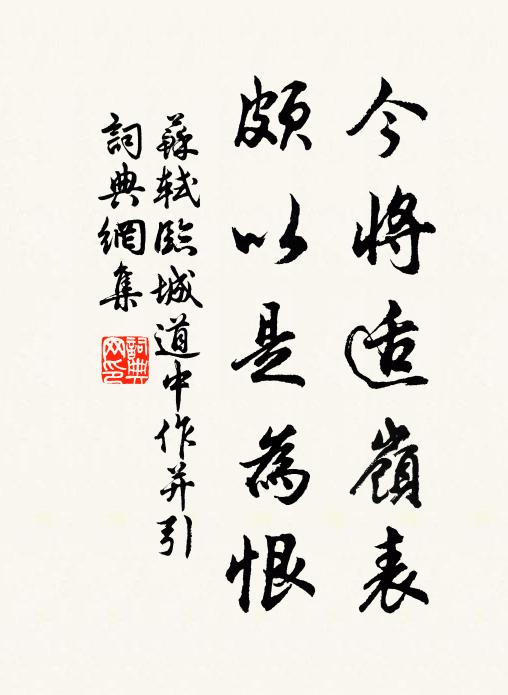 今將適嶺表
頗以是為恨
蘇軾臨城道中作并引
詞典網集
詞典網印